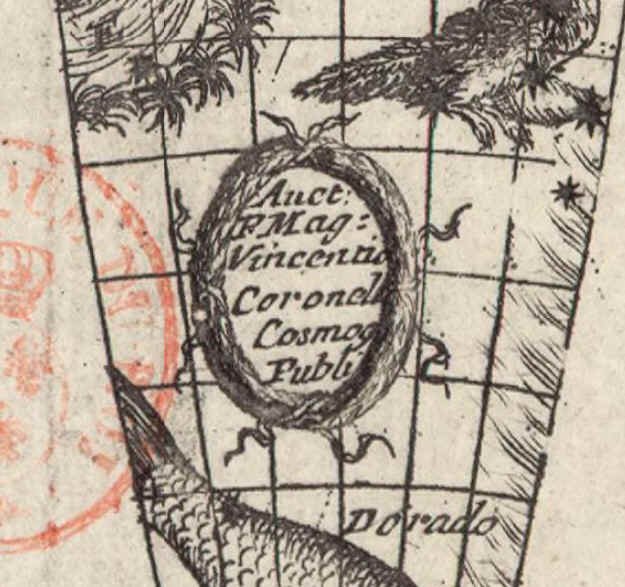 Auct:
P. Mag:
Vincentio
Coronell
Cosmog
Publi
Dorado